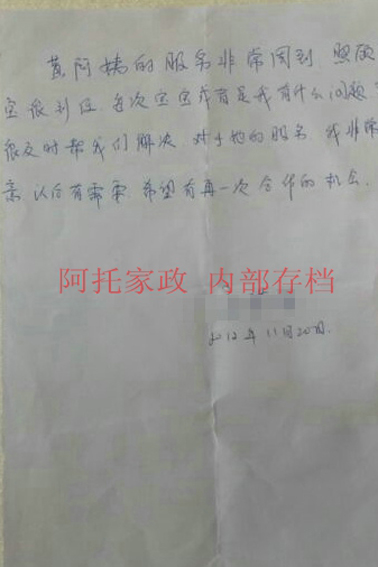 黄阿姨的服务非常周到 照顾
宝很到位 每次宝宝或者是我有什么问题
很及时帮我们解决 对于她的服务 我非常
意 以后有需要 希望有再一次合作的机会.
阿托家政 内部存档
2012年11月20日.